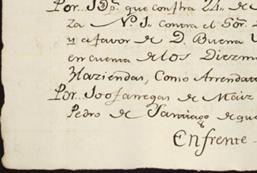 Por 1Dp. que consta 21. de
za N. S. contra el Sor.
y a favor de D. Buena V
en cuenta de los Diezm
Haziendas, Como Arrendat
Por 300 fanegas de Maiz
Pedro de Santiago de que
Enfrente